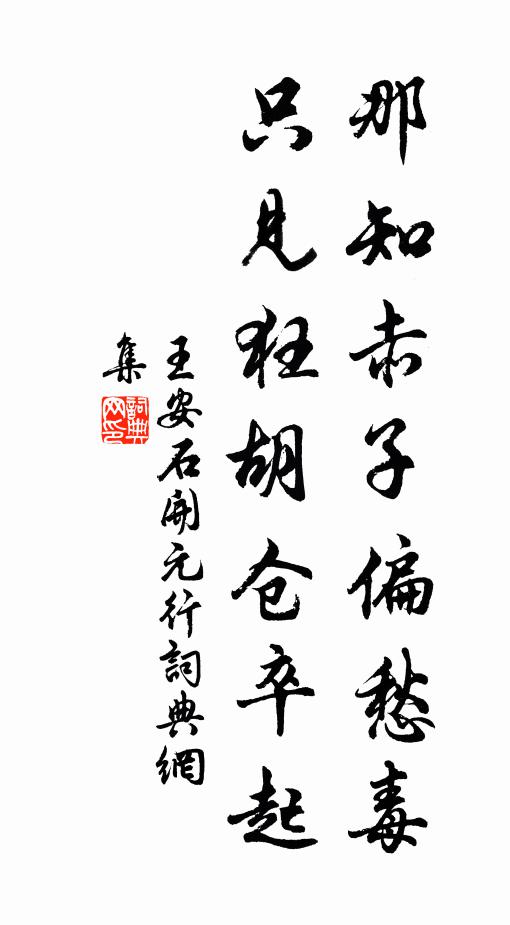 那知赤子偏愁毒
只见狂胡仓卒起
王安石開元行詞典網
集
詞典
网印